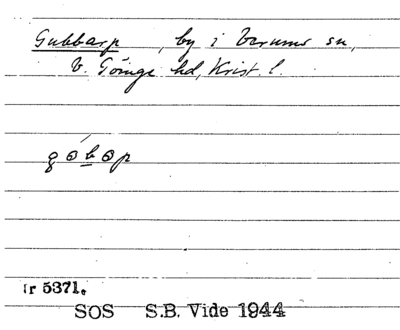 Gubbarp, by i Verums sn,
V. Göinge hd, Krist. l.
r 5371.
SOS S.B. Vide 1944